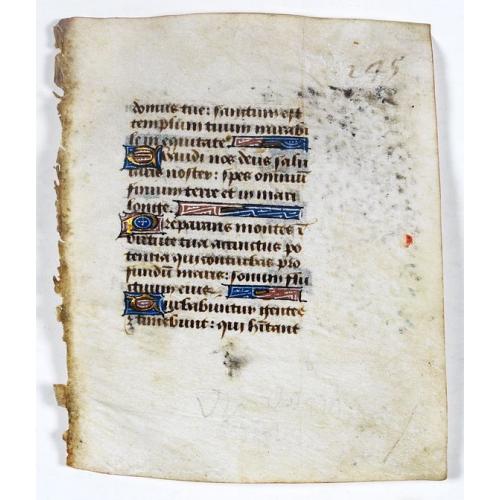 245
domus tue: sanctum est
templum tuum mirabi
le in equitate.
Exaudi nos deus salu
taris noster: spes omniũ
finium terre et in mari
longe.
Preparans montes ĩ
virtute tua accinctus po
tentia qui conturbas pro
fundũ maris: sonum fluc
tuum eius.
Turbabuntur gentes
⁊ timebunt: qui hĩtant